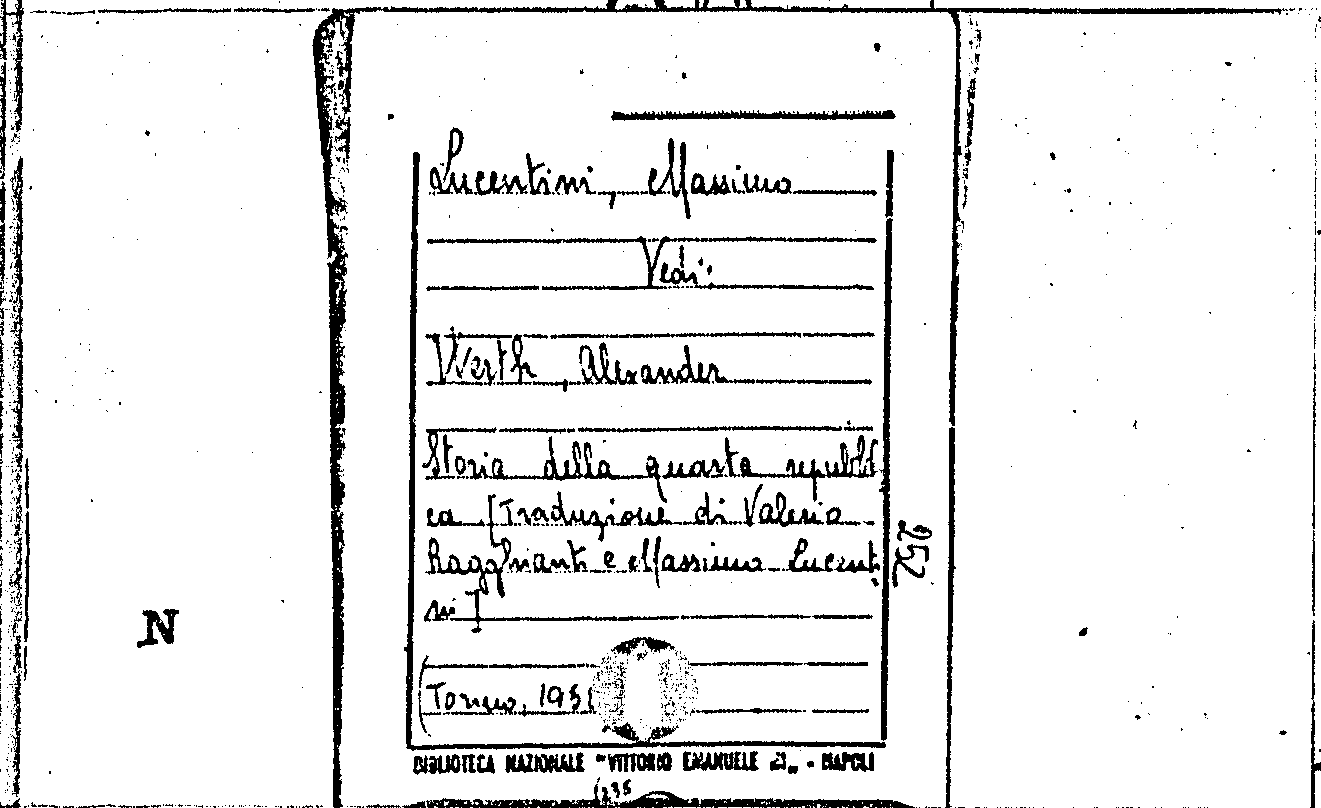 Lucentini, Massimo
Vedi:
Werth, Alexander
Storia della quarta repubbli
ca [Traduzione di Valeria
Ragghianti e Massimo Lucenti
ni]
(Torino, 195
252
N
BIBLIOTECA NAZIONALE "VITTORIO EMANUELE - NAPOLI